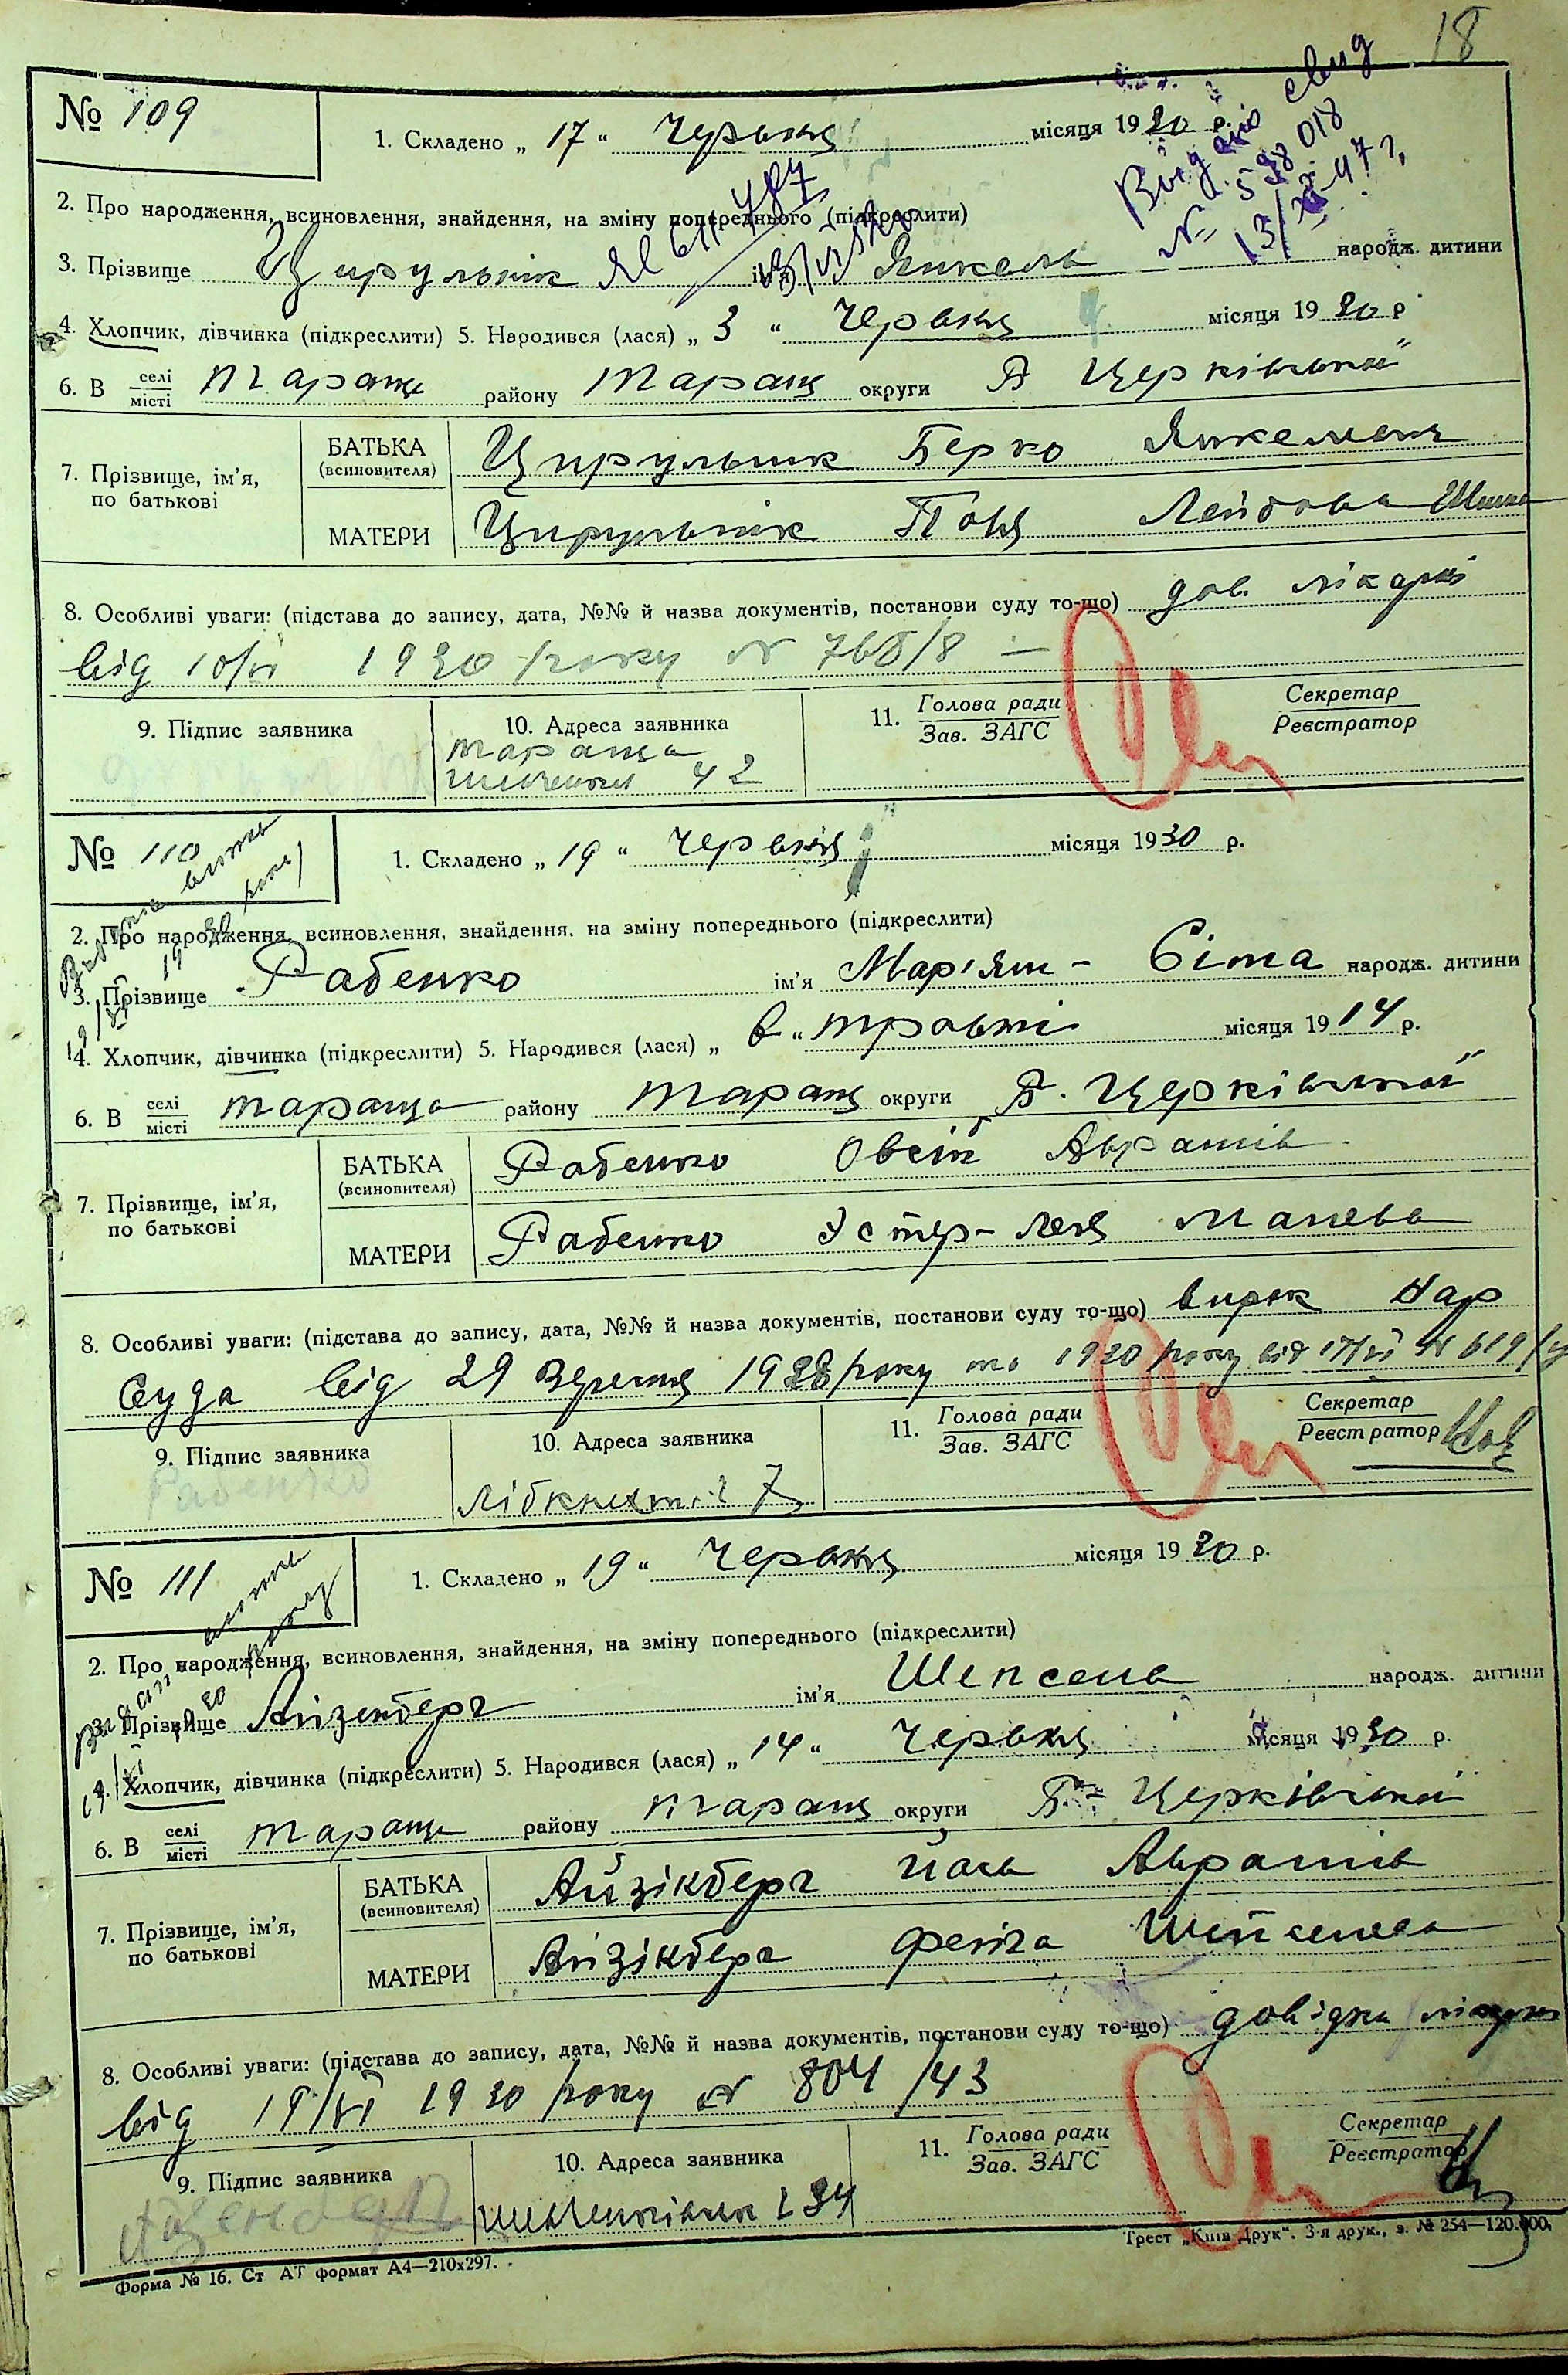 18
№ 109
1. Складено „ 17 “ Червня місяця 1930 р.
Видано свид
№ 598018
13/XI-47 г.
2. Про народження, всиновлення, знайдення, на зміну попереднього (підкреслити)
3. Прізвище Цирульнік ім'я Янкель народж. дитини
4. Хлопчик, дівчинка (підкреслити) 5. Народився (лася) „ 3 “ Червня місяця 1930 р
6. В селі місті Тараща району Таращ округи Б Церківської
7. Прізвище, ім'я, по батькові
БАТЬКА (всиновителя) Цирульник Берко Янкелевич
МАТЕРИ Цирульнік Поля Лейбова
8. Особливі уваги: (підстава до запису, дата, №№ й назва документів, постанови суду то-що) дов. лікарні
від 10/VI 1930 року N 765/8 —
9. Підпис заявника
10. Адреса заявника
Тараща
Шевченка 42
11. Голова ради
Зав. ЗАГС
Секретар
Реєстратор
№ 110
1. Складено „ 19 “ Червня місяця 1930 р.
2. Про народження, всиновлення, знайдення, на зміну попереднього (підкреслити)
3. Прізвище Рабенко ім'я Мар'ям - Сіма народж. дитини
4. Хлопчик, дівчинка (підкреслити) 5. Народився (лася) „ в “ травні місяця 1914 р.
6. В селі місті Тараща району Таращ округи Б. Церківської
7. Прізвище, ім'я, по батькові
БАТЬКА (всиновителя) Рабенко Овсій Аврамів
МАТЕРИ Рабенко Эстер-Лея
8. Особливі уваги: (підстава до запису, дата, №№ й назва документів, постанови суду то-що) вирок Нар
Суда від 29 Вересня 1928 року
9. Підпис заявника
Рабенко
10. Адреса заявника
Лібкнехта 7
11. Голова ради
Зав. ЗАГС
Секретар
Реєстратор
№ 111
1. Складено „ 19 “ Червня місяця 1930 р.
2. Про народження, всиновлення, знайдення, на зміну попереднього (підкреслити)
3. Прізвище Айзенберг ім'я Шепсель народж. дитини
4. Хлопчик, дівчинка (підкреслити) 5. Народився (лася) „ 14 “ Червня місяця 1930 р.
6. В селі місті Тараща району Таращ округи Б- Церківської
7. Прізвище, ім'я, по батькові
БАТЬКА (всиновителя) Айзікберг Йось Аврамів
МАТЕРИ Айзікберг Фейга Шепселева
8. Особливі уваги: (підстава до запису, дата, №№ й назва документів, постанови суду то-що) довідка лікарні
від 19/VI 1930 року N 804/43
9. Підпис заявника
10. Адреса заявника
11. Голова ради
Зав. ЗАГС
Секретар
Реєстратор
Форма № 16. Ст АТ формат А4—210х297.
Трест „Київ Друк“. 3-я друк., з. № 254—120.000.